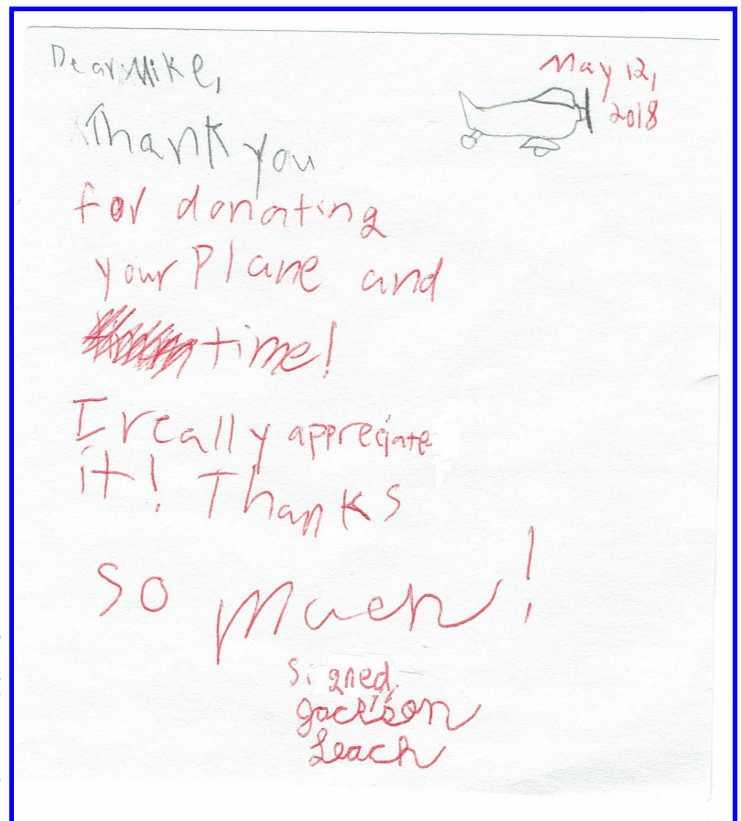 Dear Mike,
May 12,
2018
Thank you
for donating
your Plane and
time!
I really appreciate
it! Thanks
so much!
Signed,
Jackson
Leach